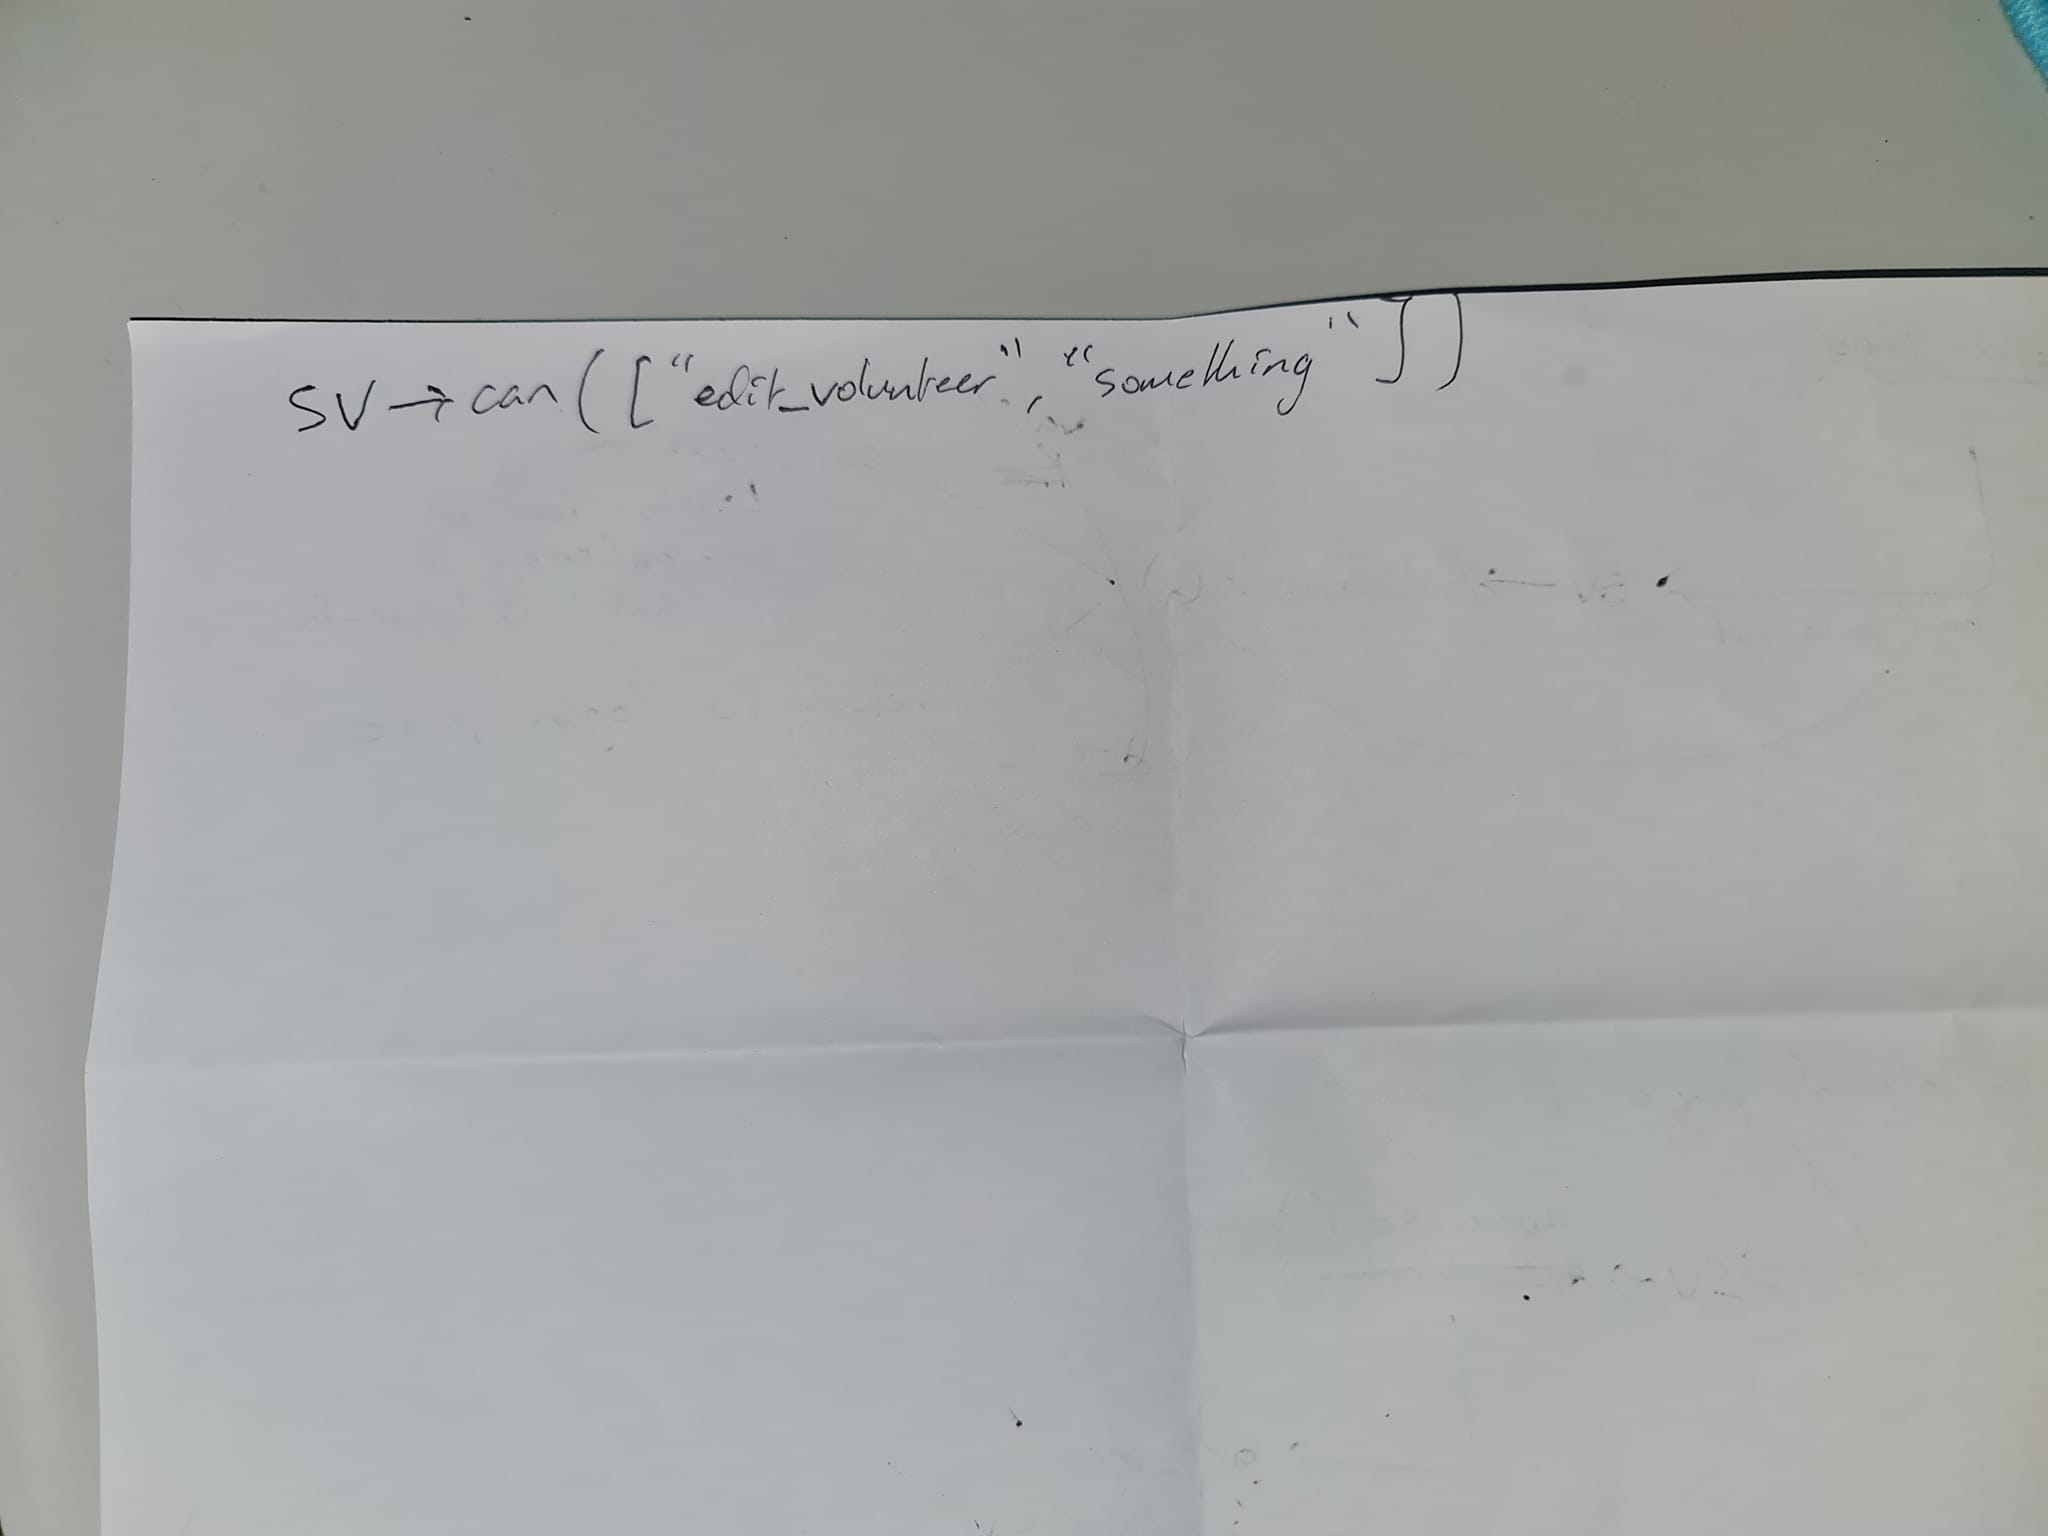 SV → can (["edit_volunteer", "something"])